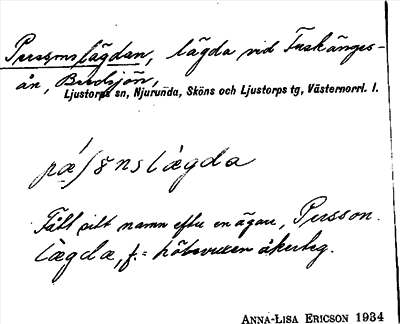 Perssonslägdan, lägda vid Fuskänges-
ån, Bredsjön,
Ljustorps sn, Njurunda, Sköns och Ljustorps tg, Västernorrl. l.
lægda
Fått sitt namn efter en ägare, Persson.
lægda, f. = höbevuxen åkerteg.
ANNA-LISA ERICSON 1934